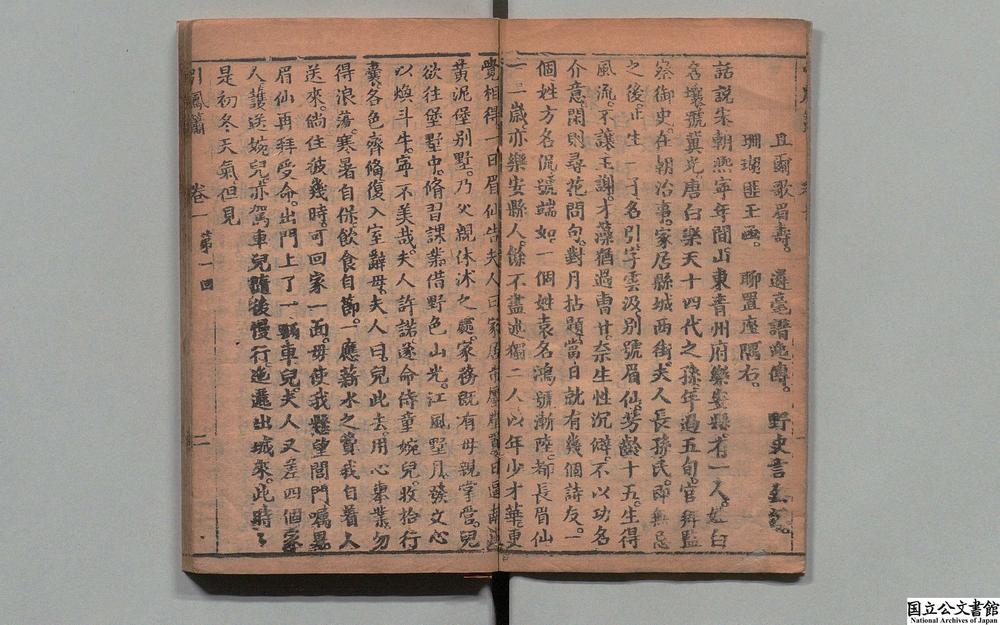 且爾歌眉壽。 遐毫譜
珊瑚匪玉函。 聊置座隅右。 野史言
話說宋朝熙寧年間山東青州府樂安縣有一人。姓白
名壤號冀光唐白樂天十四代之孫年過五旬。官拜監
察御史。在朝治事。家居縣城西街。夫人長孫氏。即無忌
之後。止生一子名引。字雲汲別號眉仙。芳齡十五。生得
風流。不讓王謝。才藻猶過曹甘。奈生性沉僻不以功名
介意。閑則尋花問句。對月拈題。當日就有幾個詩友。一
個姓方名侃號端如。一個姓袁名鴻號漸陸。都長眉仙
一二歲亦樂安縣人。餘不盡述獨二人以年少才華更
覺相得一日眉仙告夫人曰家居市
黃泥堡別墅。乃父親休沐之處。家務既有母親掌管。兒
欲往堡墅中。脩習課業。借野色山光。江風墅月。發文心
以煥斗牛。寧不美哉。夫人許諾。遂命侍童婉兒。收拾行
囊。各色齊備。復入室辭母。夫人曰。兒此去。用心舉業。勿
得浪蕩。寒暑自保。飲食自節。一應薪水之費。我自着人
送來。倘住彼幾時。可回家一面。毋使我懸望閭門。囑畢。
眉仙再拜受命。出門上了一輛車兒。夫人又差四個家
人。護送婉兒。亦駕車兒隨後慢行。迤邐出城來。此時
是初冬天氣但見
引鳳簫 卷一 第一回 二
国立公文書館
National Archives of Japan